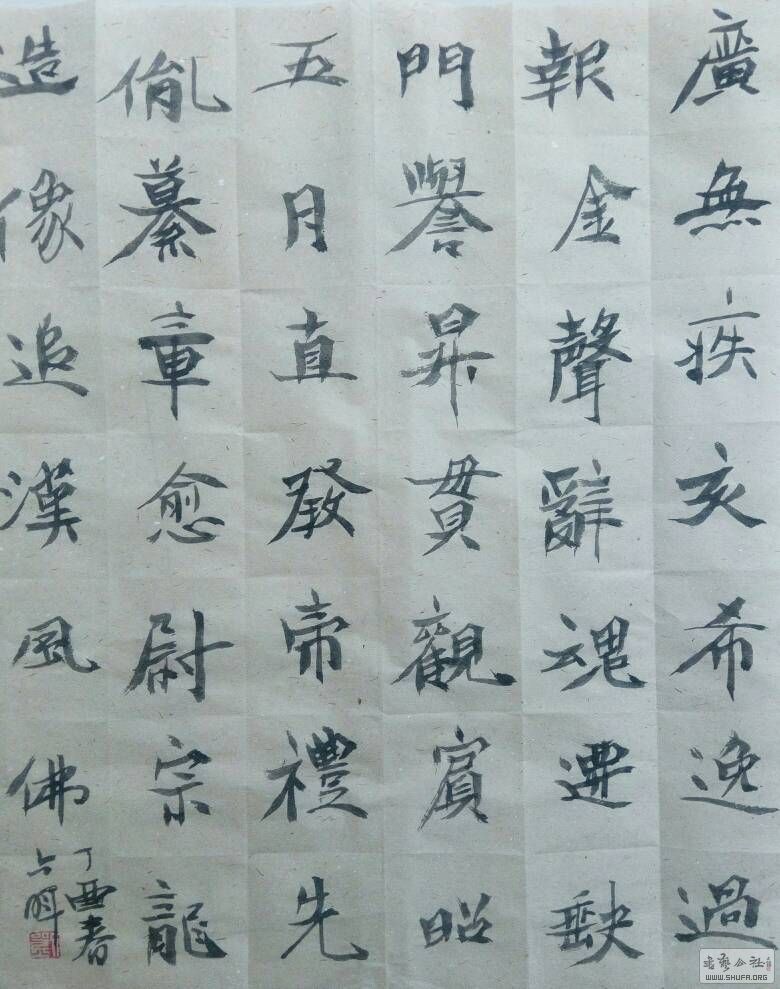 廣無疾亥希逸過
報金聲辭魂迎缺
門譽昇貫觀賓昭
五月直發帝禮先
胤纂章愈尉宗龍
造像追漢風佛
丁酉春
WWW.SHUFA.ORG